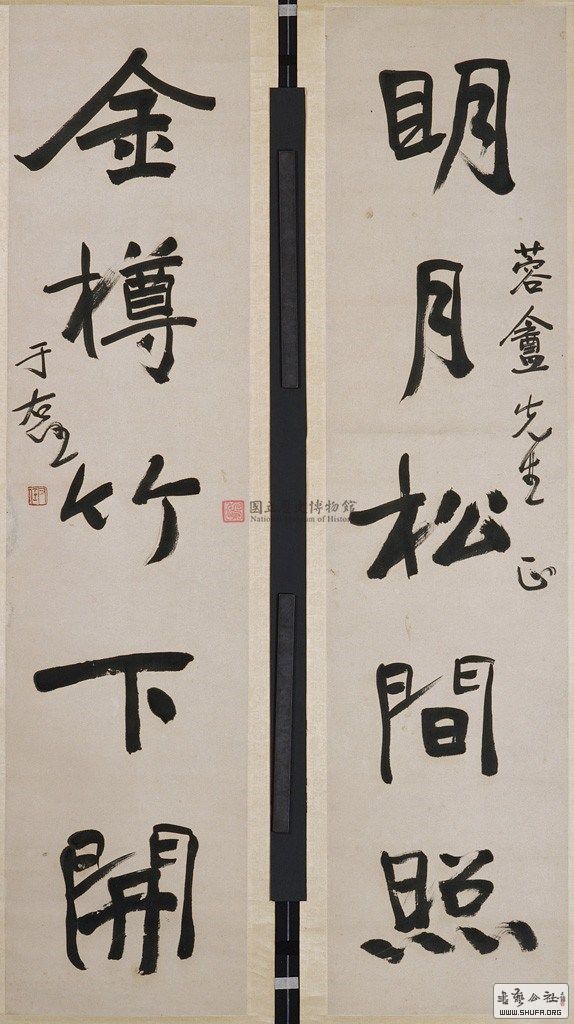 明月松間照
蓉盦先生正
金樽竹下開
于右任
国立歷史博物館
National Museum of History
書藝公社
WWW.SHUFA.ORG